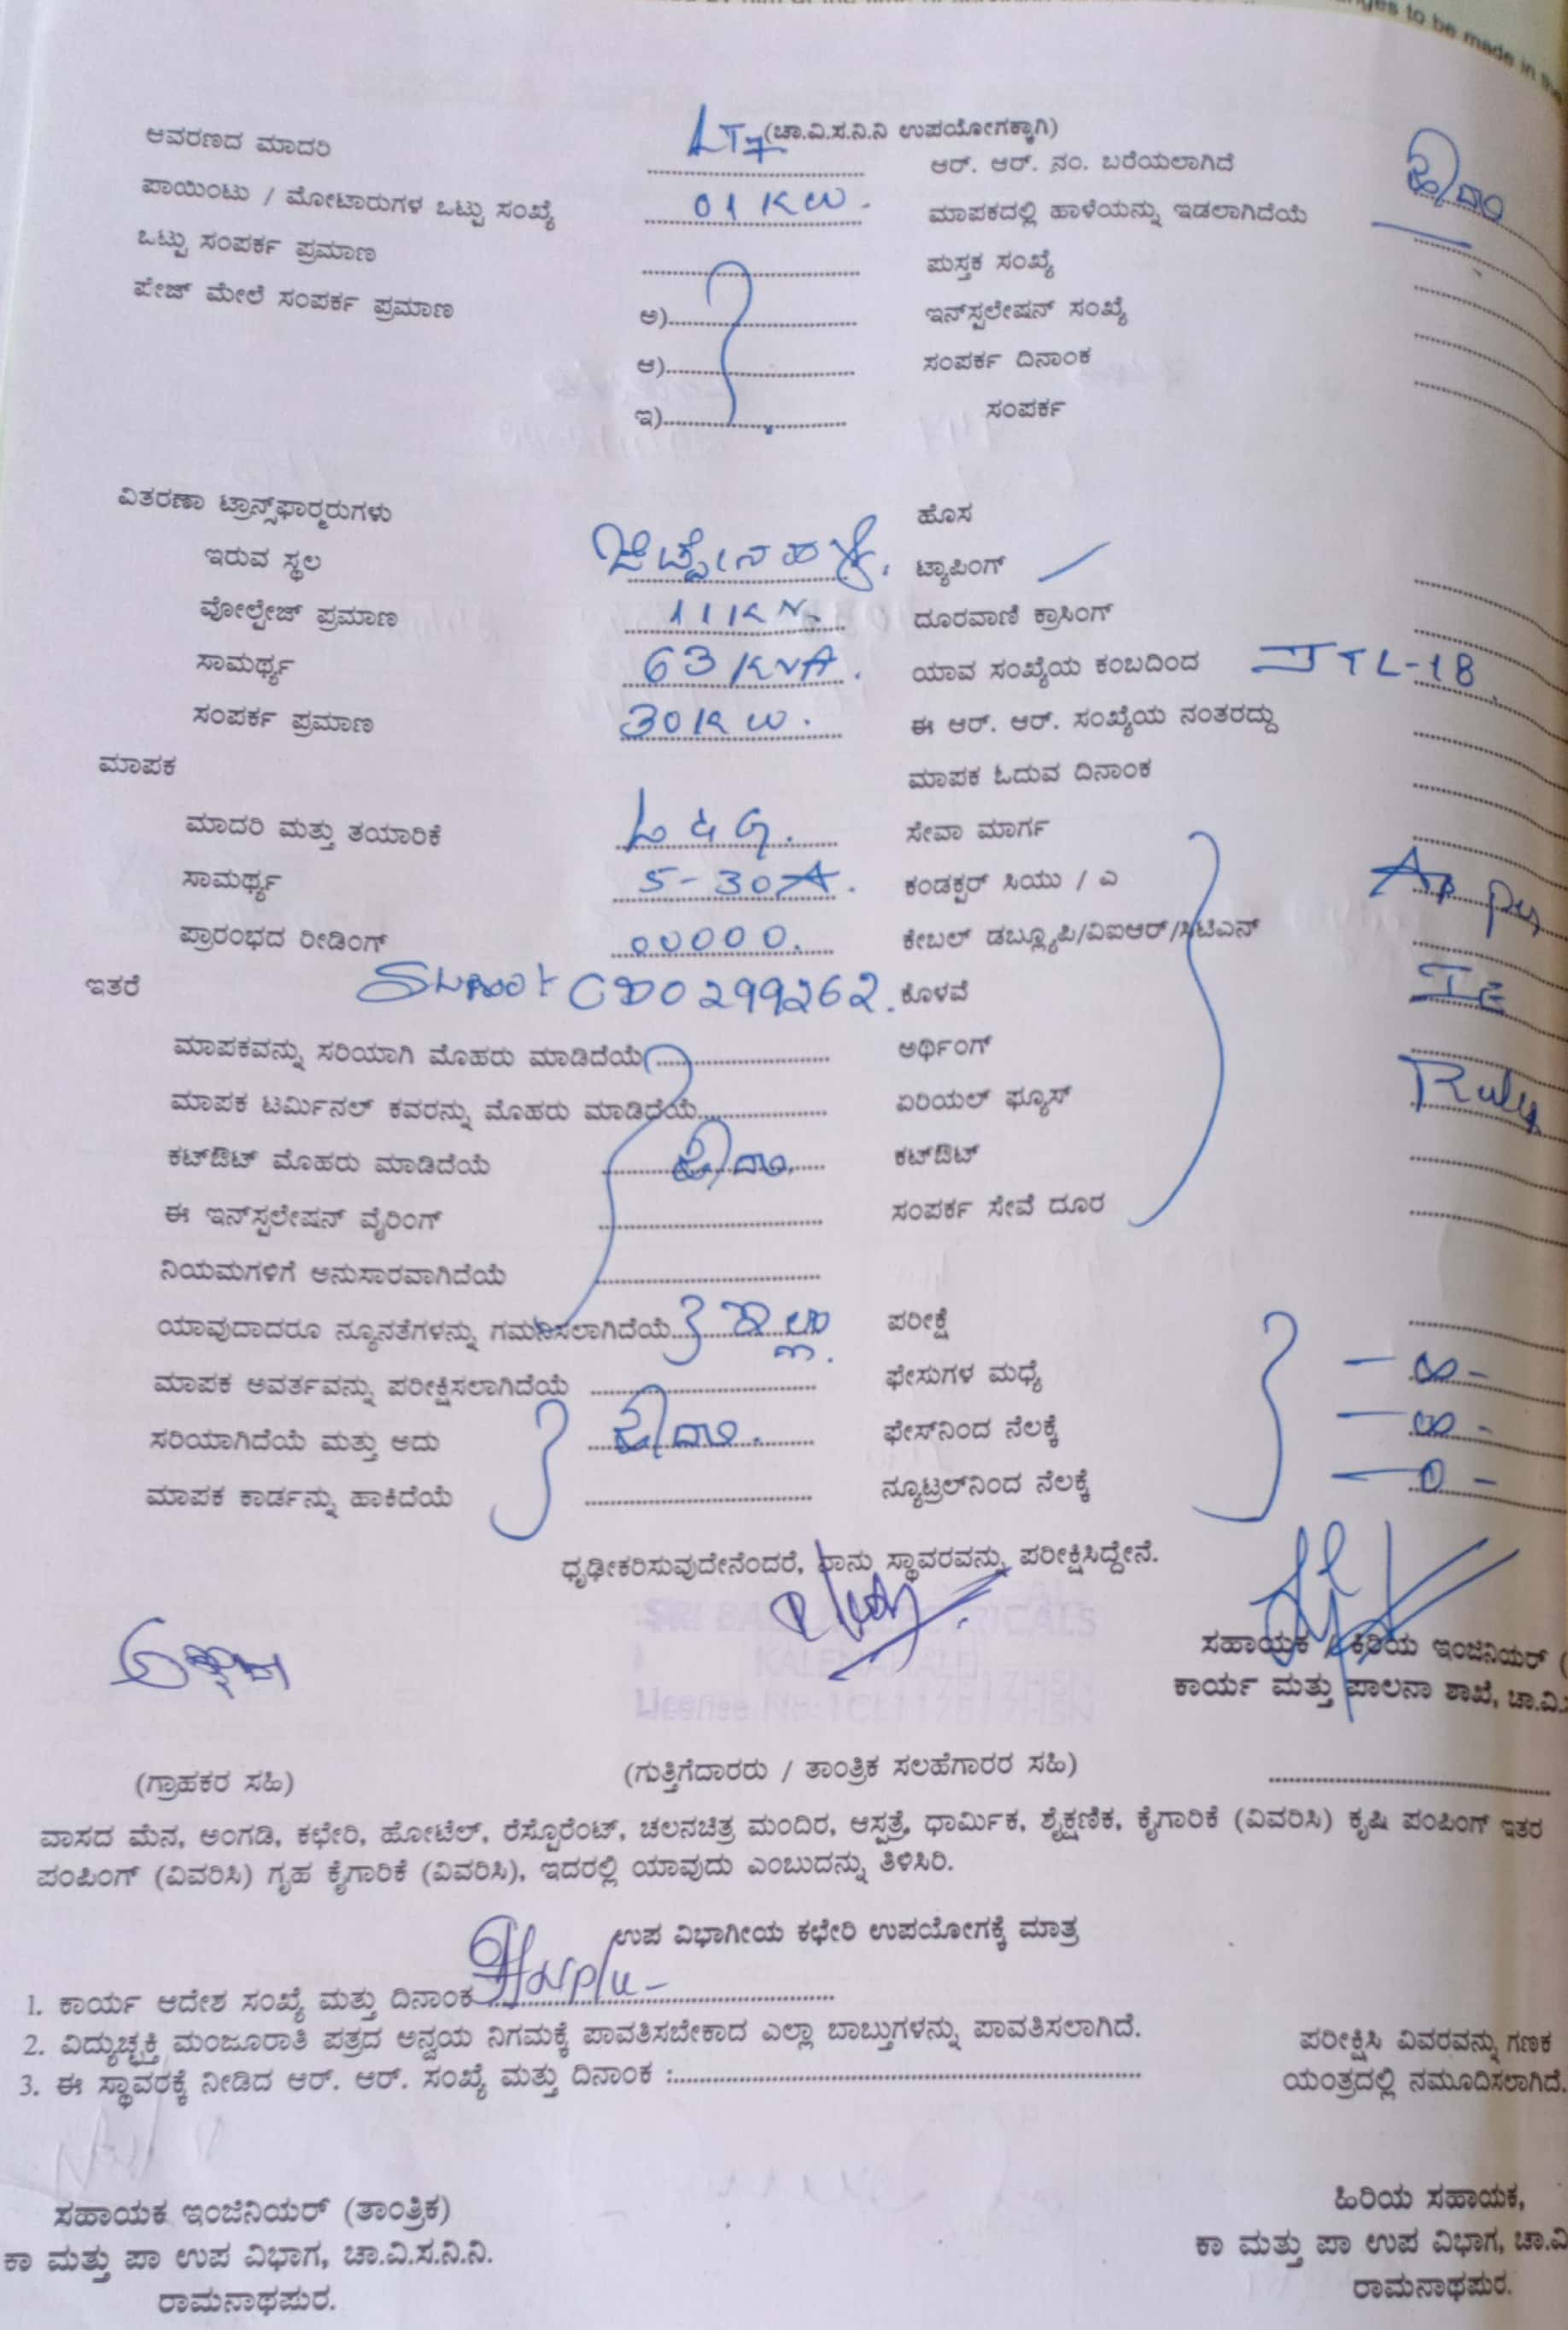 nges to be made in the
LT7 (ಚಾ.ವಿ.ಸ.ನಿ.ನಿ ಉಪಯೋಗಕ್ಕಾಗಿ)
ಆವರಣದ ಮಾದರಿ ಆರ್. ಆರ್. ನಂ. ಬರೆಯಲಾಗಿದೆ ಹೌದು
ಪಾಯಿಂಟು / ಮೋಟಾರುಗಳ ಒಟ್ಟು ಸಂಖ್ಯೆ 01 KW. ಮಾಪಕದಲ್ಲಿ ಹಾಳೆಯನ್ನು ಇಡಲಾಗಿದೆಯೆ
ಒಟ್ಟು ಸಂಪರ್ಕ ಪ್ರಮಾಣ ಪುಸ್ತಕ ಸಂಖ್ಯೆ
ಪೇಜ್ ಮೇಲೆ ಸಂಪರ್ಕ ಪ್ರಮಾಣ ಅ) ಇನ್‌ಸ್ಪಲೇಷನ್ ಸಂಖ್ಯೆ
ಆ) ಸಂಪರ್ಕ ದಿನಾಂಕ
ಇ) ಸಂಪರ್ಕ
ವಿತರಣಾ ಟ್ರಾನ್ಸ್‌ಫಾರ್‍ಮರುಗಳು ಹೊಸ
ಇರುವ ಸ್ಥಲ ಟ್ಯಾಪಿಂಗ್
ವೋಲ್ಟೇಜ್ ಪ್ರಮಾಣ 11KV. ದೂರವಾಣಿ ಕ್ರಾಸಿಂಗ್
ಸಾಮರ್ಥ್ಯ 63 KVA. ಯಾವ ಸಂಖ್ಯೆಯ ಕಂಬದಿಂದ JTL-18
ಸಂಪರ್ಕ ಪ್ರಮಾಣ 30KW. ಈ ಆರ್. ಆರ್. ಸಂಖ್ಯೆಯ ನಂತರದ್ದು
ಮಾಪಕ ಮಾಪಕ ಓದುವ ದಿನಾಂಕ
ಮಾದರಿ ಮತ್ತು ತಯಾರಿಕೆ L & G. ಸೇವಾ ಮಾರ್ಗ
ಸಾಮರ್ಥ್ಯ 5-30A. ಕಂಡಕ್ಟರ್ ಸಿಯು / ಎ As per
ಪ್ರಾರಂಭದ ರೀಡಿಂಗ್ 00000. ಕೇಬಲ್ ಡಬ್ಲ್ಯೂಪಿ/ವಿಐಆರ್/ಸಿಟಿಎನ್
ಇತರೆ CD0299262. ಕೊಳವೆ IE
ಮಾಪಕವನ್ನು ಸರಿಯಾಗಿ ಮೊಹರು ಮಾಡಿದೆಯೆ ಅರ್ಥಿಂಗ್
ಮಾಪಕ ಟರ್ಮಿನಲ್ ಕವರನ್ನು ಮೊಹರು ಮಾಡಿದೆಯೆ ಏರಿಯಲ್ ಫ್ಯೂಸ್ Rules
ಕಟ್‌ಔಟ್ ಮೊಹರು ಮಾಡಿದೆಯೆ ಹೌದು. ಕಟ್‌ಔಟ್
ಈ ಇನ್‌ಸ್ಪಲೇಷನ್ ವೈರಿಂಗ್ ಸಂಪರ್ಕ ಸೇವೆ ದೂರ
ನಿಯಮಗಳಿಗೆ ಅನುಸಾರವಾಗಿದೆಯೆ
ಯಾವುದಾದರೂ ನ್ಯೂನತೆಗಳನ್ನು ಗಮನಿಸಲಾಗಿದೆಯೆ ಇಲ್ಲ. ಪರೀಕ್ಷೆ
ಮಾಪಕ ಅವರ್ತವನ್ನು ಪರೀಕ್ಷಿಸಲಾಗಿದೆಯೆ ಫೇಸುಗಳ ಮಧ್ಯೆ -∞-
ಸರಿಯಾಗಿದೆಯೆ ಮತ್ತು ಅದು ಹೌದು. ಫೇಸ್‌ನಿಂದ ನೆಲಕ್ಕೆ -∞-
ಮಾಪಕ ಕಾರ್ಡನ್ನು ಹಾಕಿದೆಯೆ ನ್ಯೂಟ್ರಲ್‌ನಿಂದ ನೆಲಕ್ಕೆ -0-
ಧೃಢೀಕರಿಸುವುದೇನೆಂದರೆ, ನಾನು ಸ್ಥಾವರವನ್ನು ಪರೀಕ್ಷಿಸಿದ್ದೇನೆ.
ಸಹಾಯಕ / ಕಿರಿಯ ಇಂಜಿನಿಯರ್ (
ಕಾರ್ಯ ಮತ್ತು ಪಾಲನಾ ಶಾಖೆ, ಚಾ.ವಿ.
(ಗ್ರಾಹಕರ ಸಹಿ) (ಗುತ್ತಿಗೆದಾರರು / ತಾಂತ್ರಿಕ ಸಲಹೆಗಾರರ ಸಹಿ)
ವಾಸದ ಮೆನ, ಅಂಗಡಿ, ಕಛೇರಿ, ಹೋಟೆಲ್, ರೆಸ್ಟೊರೆಂಟ್, ಚಲನಚಿತ್ರ ಮಂದಿರ, ಆಸ್ಪತ್ರೆ, ಧಾರ್ಮಿಕ, ಶೈಕ್ಷಣಿಕ, ಕೈಗಾರಿಕೆ (ವಿವರಿಸಿ) ಕೃಷಿ ಪಂಪಿಂಗ್ ಇತರ
ಪಂಪಿಂಗ್ (ವಿವರಿಸಿ) ಗೃಹ ಕೈಗಾರಿಕೆ (ವಿವರಿಸಿ), ಇದರಲ್ಲಿ ಯಾವುದು ಎಂಬುದನ್ನು ತಿಳಿಸಿರಿ.
ಉಪ ವಿಭಾಗೀಯ ಕಛೇರಿ ಉಪಯೋಗಕ್ಕೆ ಮಾತ್ರ
1. ಕಾರ್ಯ ಆದೇಶ ಸಂಖ್ಯೆ ಮತ್ತು ದಿನಾಂಕ
2. ವಿದ್ಯುಚ್ಛಕ್ತಿ ಮಂಜೂರಾತಿ ಪತ್ರದ ಅನ್ವಯ ನಿಗಮಕ್ಕೆ ಪಾವತಿಸಬೇಕಾದ ಎಲ್ಲಾ ಬಾಬ್ತುಗಳನ್ನು ಪಾವತಿಸಲಾಗಿದೆ. ಪರೀಕ್ಷಿಸಿ ವಿವರವನ್ನು ಗಣಕ
3. ಈ ಸ್ಥಾವರಕ್ಕೆ ನೀಡಿದ ಆರ್. ಆರ್. ಸಂಖ್ಯೆ ಮತ್ತು ದಿನಾಂಕ : ಯಂತ್ರದಲ್ಲಿ ನಮೂದಿಸಲಾಗಿದೆ.
ಸಹಾಯಕ ಇಂಜಿನಿಯರ್ (ತಾಂತ್ರಿಕ) ಹಿರಿಯ ಸಹಾಯಕ,
ಕಾ ಮತ್ತು ಪಾ ಉಪ ವಿಭಾಗ, ಚಾ.ವಿ.ಸ.ನಿ.ನಿ. ಕಾ ಮತ್ತು ಪಾ ಉಪ ವಿಭಾಗ, ಚಾ.ವಿ
ರಾಮನಾಥಪುರ. ರಾಮನಾಥಪುರ.